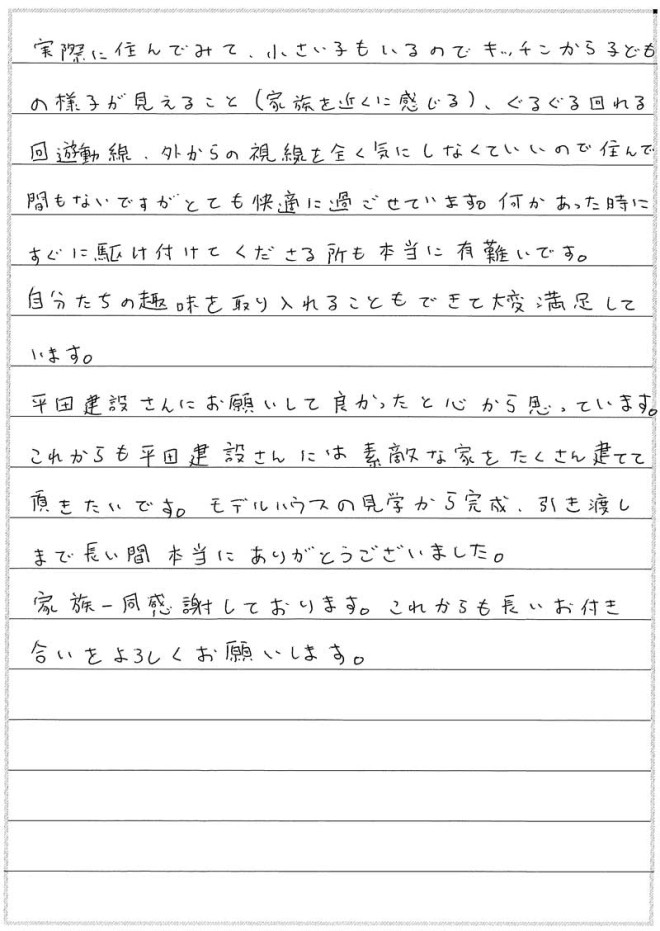 実際に住んでみて、小さい子もいるのでキッチンから子ども
の様子が見えること(家族を近くに感じる)、ぐるぐる回れる
回遊動線、外からの視線を全く気にしなくていいので住んで
間もないですがとても快適に過ごせています。何かあった時に
すぐに駆け付けてくださる所も本当に有難いです。
自分たちの趣味を取り入れることもできて大変満足して
います。
平田建設さんにお願いして良かったと心から思っています。
これからも平田建設さんには素敵な家をたくさん建てて
頂きたいです。モデルハウスの見学から完成、引き渡し
まで長い間本当にありがとうございました。
家族一同感謝しております。これからも長いお付き
合いをよろしくお願いします。